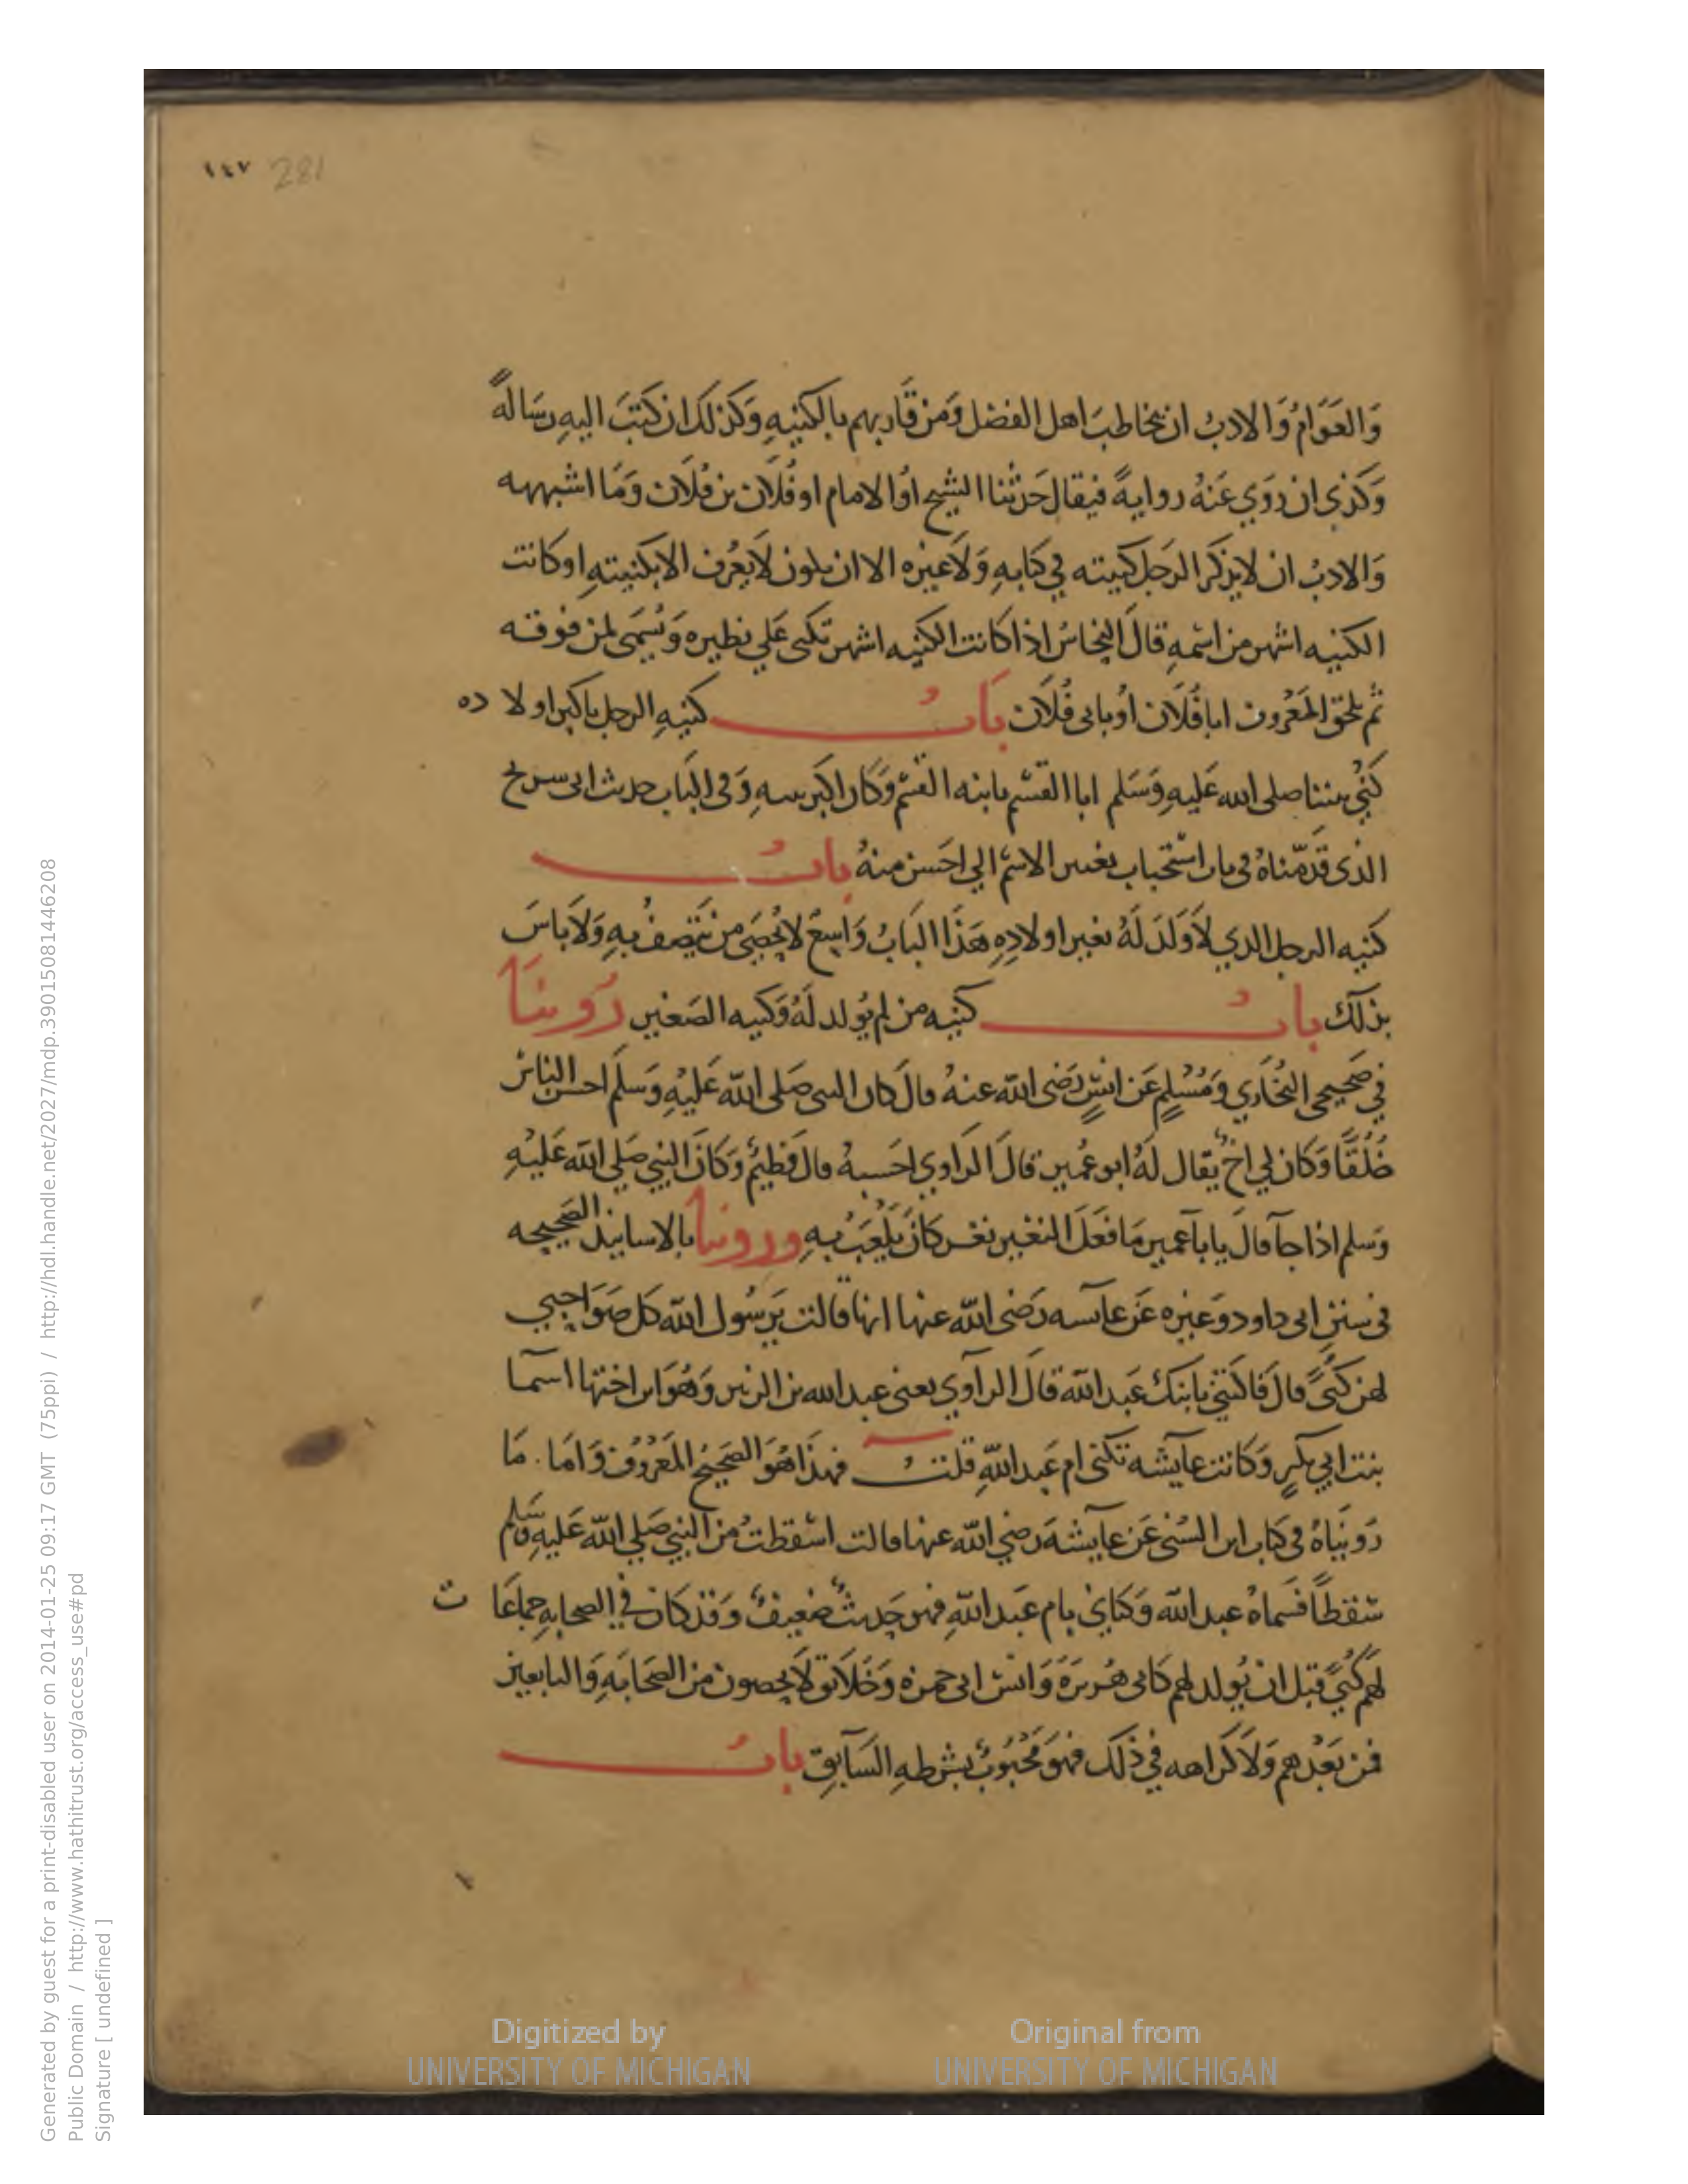 ١٤٧ 281
وَالعَوَامُ وَالادبُ ان يخاطبَ اهل الفضل وَمن قَاربهم بالكنيهِ وَكذلك ان كتبَ اليهِ رسَالةً
وَكذى ان رَوَي عَنهُ روايةً فيقال حَدثنا الشيخ اوُ الامام ابو فُلَان بن فُلَان وَمَا اشبهه
وَالادبُ ان لا يذكرَ الرجل كنيته في كتابهِ وَلَا غيره الا ان يكون لَا يعُرف الا بكنيتهِ او كانت
الكنيه اشهر من اسمهِ قالَ النحاسُ اذا كانت الكنيه اشهر تكنى عَلي نظيره وَيُسَمى لمن فوقه
ثم يلحق المَعْروف ابا فُلَان اوُ بابى فُلَان بَابُ كنيهِ الرجل باكبر اولا ده
كُنّي نبينا صلى الله عَليهِ وَسَلم ابا القسم بابنه القسم وَكان اكبر بنيهِ وَفى البَاب حديث ابى سريح
الذى قدّمنَاهُ فى باب استحباب تغيير الاسم الي احَسن منهُ بابُ
كنيه الرجل الدي لَا وَلدَ لَهُ بغير اولادِهِ هَذَا البَابُ وَاسِعٌ لا يُحصَى من يتصفُ بهِ وَلَا باسَ
بذلك بابُ كنيه من لم يُولد لَهُ وَكنيه الصَغير رَوينَا
في صَحيحى البُخَاري وَمُسْلمٍ عَن انسٍ رَضى الله عنهُ قالَ كان النبى صَلى الله عَليْهِ وَسَلم احسن النَاس
خُلُقًا وَكان لي اخ يقال لَهُ ابو عُمير قالَ الرَاوي احَسبهُ قالَ فطيمٌ وَكانَ النبي صَلي الله عَليْهِ
وَسلم اذا جآ قالَ يا بآ عمير مَا فعَلَ النغير نغر كانَ يَلْعَبُ بهِ وروينا بالاسانيد الصَحيحه
فى سننِ ابى داود وَغيره عَن عآيسه رَضى الله عنها انها قالت يَرسُول الله كل صَوَاحبي
لهن كنىً قالَ فاكتني بابنك عَبد الله قالَ الراوي يعنى عبد الله بن الزبير وَهُوَ ابن اختها اسمآ
بنت ابي بكرٍ وَكانت عآيشه تكنى ام عَبد اللهِ قلتُ فهذَا هُوَ الصَحيحُ المَعْروُف وَامَا . مَا
رَوينَاهُ فى كتاب ابن السُنى عَن عآيشهَ رَضي الله عنها قالت اسْقطتُ من النبي صَلي الله عَليهِ وسَلم
سْقطاً فسَماهُ عبد الله وَكناني بام عَبد اللهِ فهو حَديثٌ ضعيفٌ وَقد كان في الصحابهِ جماعَا ت
لهم كُنىً قبل ان يُولد لهم كابى هُريرَةَ وَانس ابى حمزه وَخَلَايق لَا يحصون من الصَحَابَهِ وَالتابعين
فمن بَعْدهم وَلَا كراهه في ذلك فهو مَحُبُوبٌ بشرطهِ السَآبقِ بَابُ
Generated by guest for a print-disabled user on 2014-01-25 09:17 GMT (75ppi) / http://hdl.handle.net/2027/mdp.39015081446208
Public Domain / http://www.hathitrust.org/access_use#pd
Signature [ undefined ]
Digitized by
UNIVERSITY OF MICHIGAN
Original from
UNIVERSITY OF MICHIGAN